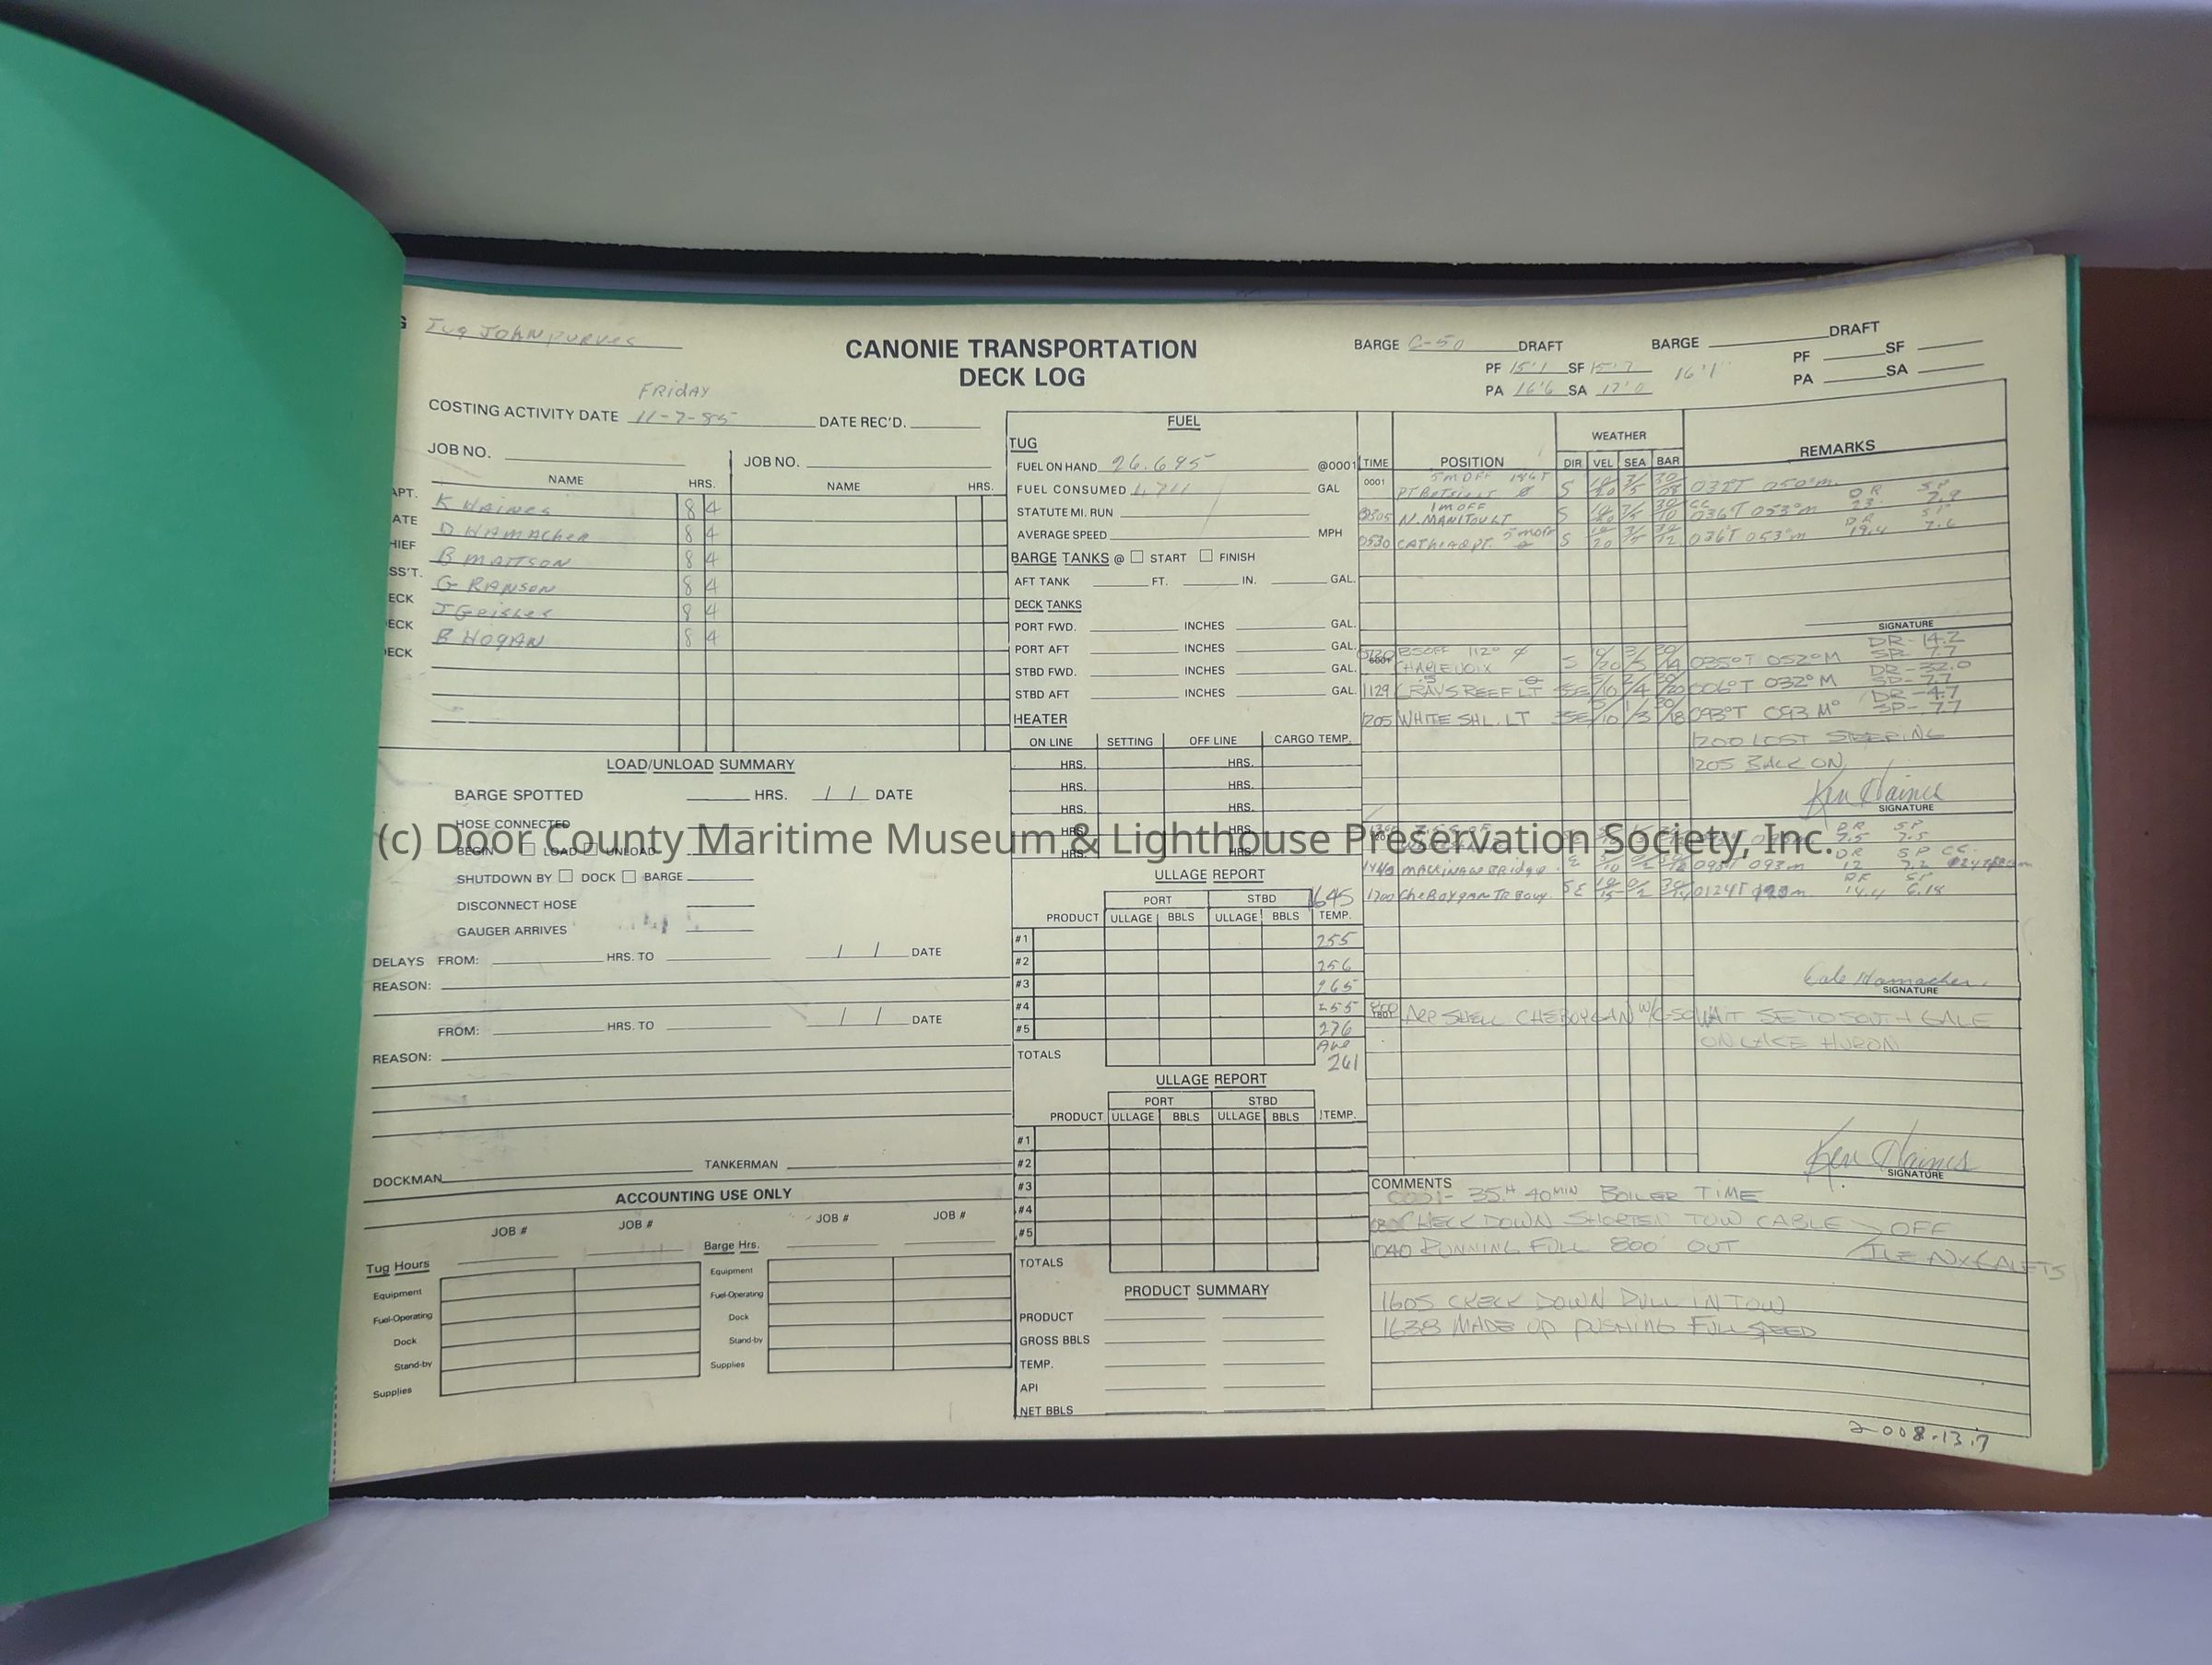 Tug JOHN PURVES
CANONIE TRANSPORTATION
DECK LOG
BARGE C-50 DRAFT
PF 15'1 SF 15'7 16'1"
PA 16'6 SA 17'0
BARGE DRAFT
PF SF
PA SA
FRIDAY
COSTING ACTIVITY DATE 11-7-85 DATE REC'D.
JOB NO. JOB NO.
NAME HRS. NAME HRS.
APT. K HAINES 8 4
ATE D HAMACHER 8 4
HIEF B MATTSON 8 4
SS'T. G RANSON 8 4
ECK J Geisler 8 4
ECK B HOGAN 8 4
ECK
LOAD/UNLOAD SUMMARY
BARGE SPOTTED HRS. / / DATE
HOSE CONNECTED
BEGIN LOAD UNLOAD
SHUTDOWN BY DOCK BARGE
DISCONNECT HOSE
GAUGER ARRIVES
DELAYS FROM: HRS. TO / / DATE
REASON:
FROM: HRS. TO / / DATE
REASON:
DOCKMAN TANKERMAN
ACCOUNTING USE ONLY
JOB # JOB # JOB # JOB #
Tug Hours Barge Hrs.
Equipment Equipment
Fuel-Operating Fuel-Operating
Dock Dock
Stand-by Stand-by
Supplies Supplies
FUEL
TUG
FUEL ON HAND 26.695 @0001
FUEL CONSUMED 1,711 GAL
STATUTE MI. RUN
AVERAGE SPEED MPH
BARGE TANKS @ START FINISH
AFT TANK FT. IN. GAL.
DECK TANKS
PORT FWD. INCHES GAL.
PORT AFT INCHES GAL.
STBD FWD. INCHES GAL.
STBD AFT INCHES GAL.
HEATER
ON LINE SETTING OFF LINE CARGO TEMP.
HRS. HRS.
HRS. HRS.
HRS. HRS.
HRS. HRS.
HRS. HRS.
ULLAGE REPORT
PORT STBD 1645
PRODUCT ULLAGE BBLS ULLAGE BBLS TEMP.
#1 255
#2 256
#3 265
#4 255
#5 276
TOTALS Ave 261
ULLAGE REPORT
PORT STBD
PRODUCT ULLAGE BBLS ULLAGE BBLS TEMP.
#1
#2
#3
#4
#5
TOTALS
PRODUCT SUMMARY
PRODUCT
GROSS BBLS
TEMP.
API
NET BBLS
WEATHER
TIME POSITION DIR VEL SEA BAR REMARKS
0001 5 M OFF PT Betsie LT S 3/5 050°m
0305 1 M OFF N. MANITOU LT S 036T 053°m DR 23. SP 7.9
0530 CATHEAD PT. 5 M OFF S 20 3/5 30/12 036T 053°m DR 19.4 SP 7.6
SIGNATURE
8.5 OFF 112° CHARLEVOIX S 20 3/5 30/19 035°T 052°M DR-14.2 SP-7.7
1129 .5 GRAYS REEF LT SSE 10 2/4 30/20 006°T 032°M DR-32.0 SP-7.7
1205 WHITE SHL. LT SSE 10 1/3 30/18 093°T 093 M° DR-4.7 SP-7.7
1200 LOST STEERING
1205 BACK ON
Ken Haines
SIGNATURE
DR 7.5 SP 7.5
1440 MACKINAW BRidge E 093T 093m DR 12 SP 7.2 CC
1700 CheBoygan TR Bouy. SE 0124T DR 14.4 SP 6.18
Gale Hamacher
SIGNATURE
1800 ARR SHELL CHEBOYGAN W/C-50 WAIT SE TO SOUTH GALE
ON LAKE HURON
Ken Haines
SIGNATURE
COMMENTS
0001- 35H 40MIN BOILER TIME
CHECK DOWN SHORTEN TOW CABLE > OFF
1040 RUNNING FULL 800' OUT ILE AUX GALETS
1605 CHECK DOWN PULL IN TOW
1638 MADE UP PUSHING FULL SPEED
2008.13.7
(c) Door County Maritime Museum & Lighthouse Preservation Society, Inc.